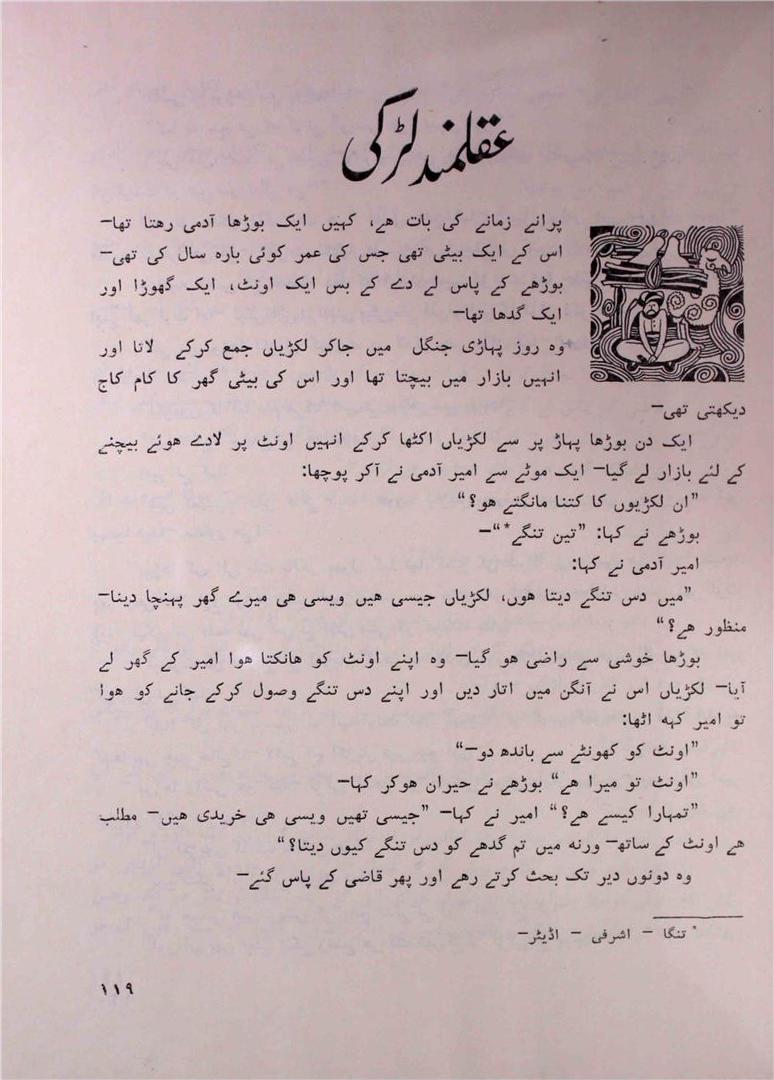 عقلمند لڑکی
پرانے زمانے کی بات ھے، کہیں ایک بوڑھا آدمی رھتا تھا—
اس کے ایک بیٹی تھی جس کی عمر کوئی بارہ سال کی تھی—
بوڑھے کے پاس لے دے کے بس ایک اونٹ، ایک گھوڑا اور
ایک گدھا تھا—
وہ روز پہاڑی جنگل میں جاکر لکڑیاں جمع کرکے لاتا اور
انہیں بازار میں بیچتا تھا اور اس کی بیٹی گھر کا کام کاج
دیکھتی تھی—
ایک دن بوڑھا پہاڑ پر سے لکڑیاں اکٹھا کرکے انہیں اونٹ پر لادے ھوئے بیچنے
کے لئے بازار لے گیا— ایک موٹے سے امیر آدمی نے آکر پوچھا:
”ان لکڑیوں کا کتنا مانگتے ھو؟“
بوڑھے نے کہا: ”تین تنگے*“—
امیر آدمی نے کہا:
”میں دس تنگے دیتا ھوں، لکڑیاں جیسی ھیں ویسی ھی میرے گھر پہنچا دینا—
منظور ھے؟“
بوڑھا خوشی سے راضی ھو گیا— وہ اپنے اونٹ کو ھانکتا ھوا امیر کے گھر لے
آیا— لکڑیاں اس نے آنگن میں اتار دیں اور اپنے دس تنگے وصول کرکے جانے کو ھوا
تو امیر کہہ اٹھا:
”اونٹ کو کھونٹے سے باندھ دو—“
”اونٹ تو میرا ھے“ بوڑھے نے حیران ھوکر کہا—
”تمہارا کیسے ھے؟“ امیر نے کہا— ”جیسی تھیں ویسی ھی خریدی ھیں— مطلب
ھے اونٹ کے ساتھ— ورنہ میں تم گدھے کو دس تنگے کیوں دیتا؟“
وہ دونوں دیر تک بحث کرتے رھے اور پھر قاضی کے پاس گئے—
* تنگا — اشرفی — اڈیٹر—
۱۱۹